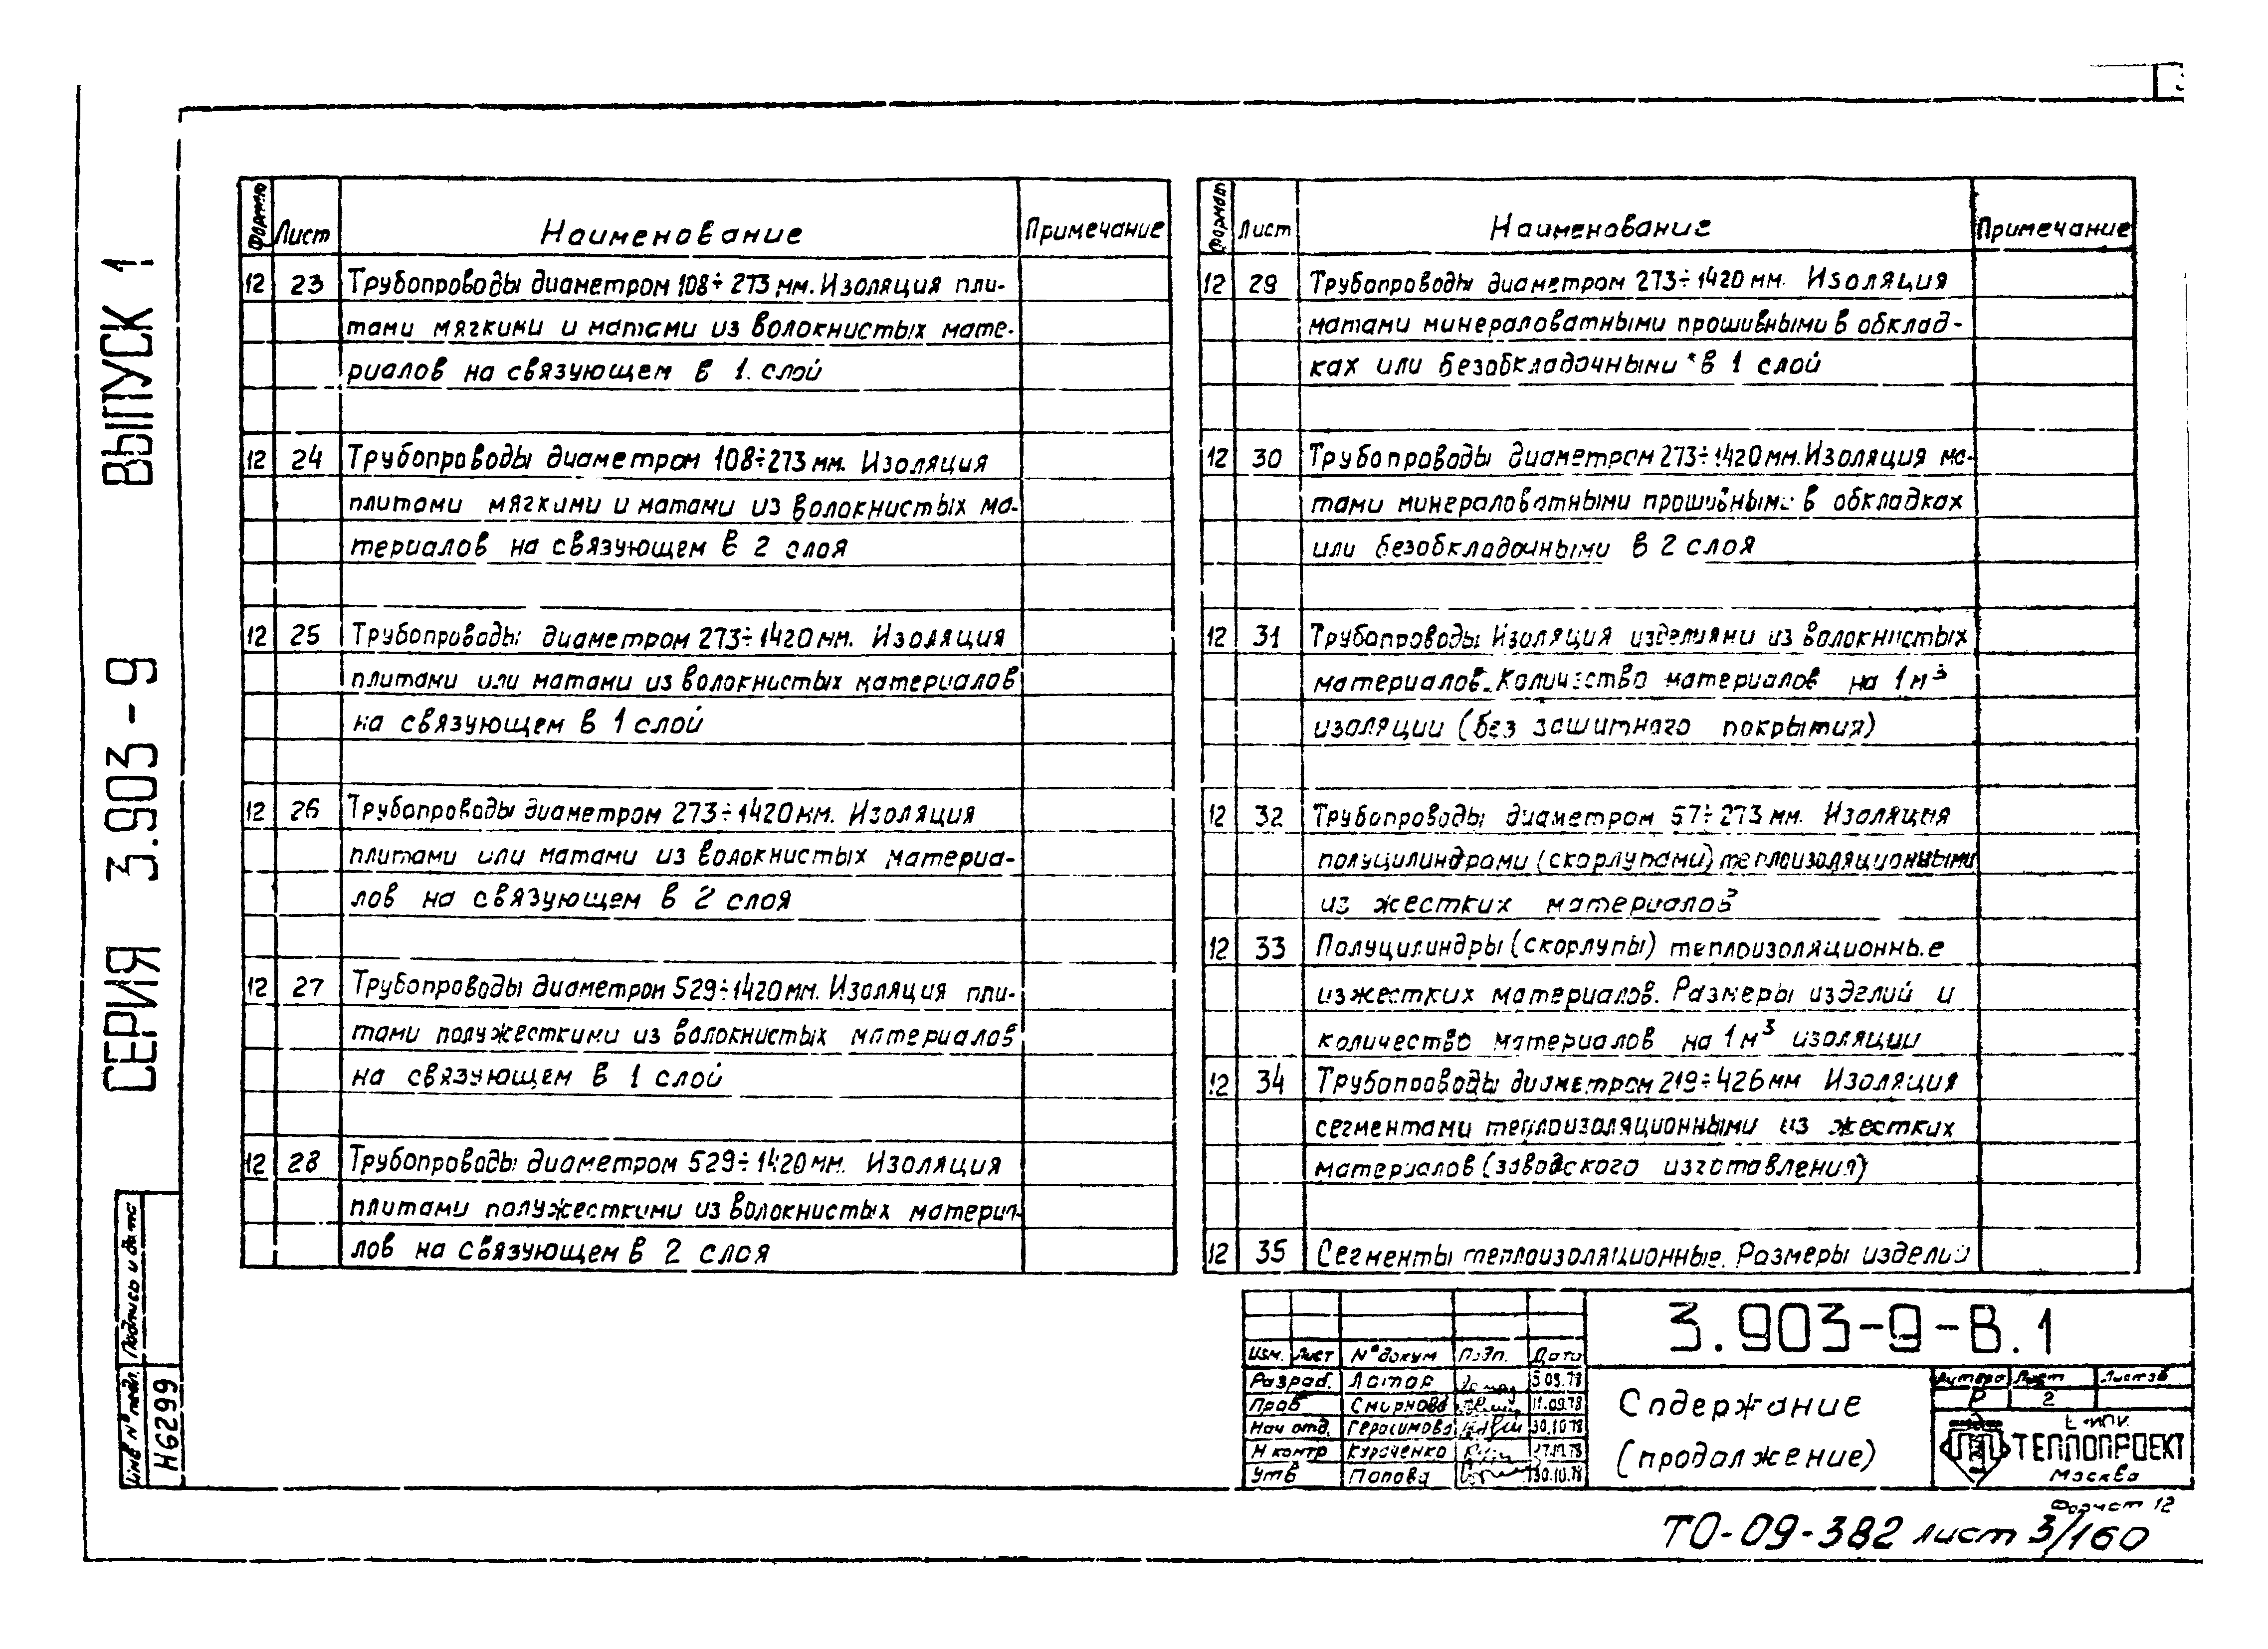 СЕРИЯ 3.903-9 ВЫПУСК 1
Формат Лист Наименование Примечание
12 23 Трубопроводы диаметром 108÷273 мм. Изоляция пли-
тами мягкими и матами из волокнистых мате-
риалов на связующем в 1 слой
12 24 Трубопроводы диаметром 108÷273 мм. Изоляция
плитами мягкими и матами из волокнистых ма-
териалов на связующем в 2 слоя
12 25 Трубопроводы диаметром 273÷1420 мм. Изоляция
плитами или матами из волокнистых материалов
на связующем в 1 слой
12 26 Трубопроводы диаметром 273÷1420 мм. Изоляция
плитами или матами из волокнистых материа-
лов на связующем в 2 слоя
12 27 Трубопроводы диаметром 529÷1420 мм. Изоляция пли-
тами полужесткими из волокнистых материалов
на связующем в 1 слой
12 28 Трубопроводы диаметром 529÷1420 мм. Изоляция
плитами полужесткими из волокнистых материа-
лов на связующем в 2 слоя
Формат Лист Наименование Примечание
12 29 Трубопроводы диаметром 273÷1420 мм. Изоляция
матами минераловатными прошивными в обклад-
ках или безобкладочными в 1 слой
12 30 Трубопроводы диаметром 273÷1420 мм. Изоляция ма-
тами минераловатными прошивными в обкладках
или безобкладочными в 2 слоя
12 31 Трубопроводы Изоляция изделиями из волокнистых
материалов. Количество материалов на 1 м³
изоляции (без защитного покрытия)
12 32 Трубопроводы диаметром 57÷273 мм. Изоляция
полуцилиндрами (скорлупами) теплоизоляционными
из жестких материалов
12 33 Полуцилиндры (скорлупы) теплоизоляционные
из жестких материалов. Размеры изделий и
количество материалов на 1 м³ изоляции
12 34 Трубопроводы диаметром 219÷426 мм Изоляция
сегментами теплоизоляционными из жестких
материалов (заводского изготовления)
12 35 Сегменты теплоизоляционные. Размеры изделий
Инв № подл. Подпись и дата
Н6299
Изм. Лист № докум Подп. Дата
Разраб. Лотар 5.09.78
Пров Смирнова 11.09.78
Нач отд. Герасимова 30.10.78
Н контр Кураченко
Утв Попова 30.10.78
3.903-9-В.1
Содержание
(продолжение)
Литера Лист Листов
Р 2
ТЕПЛОПРОЕКТ
Москва
Формат 12
ТО-09-382 лист 3/160